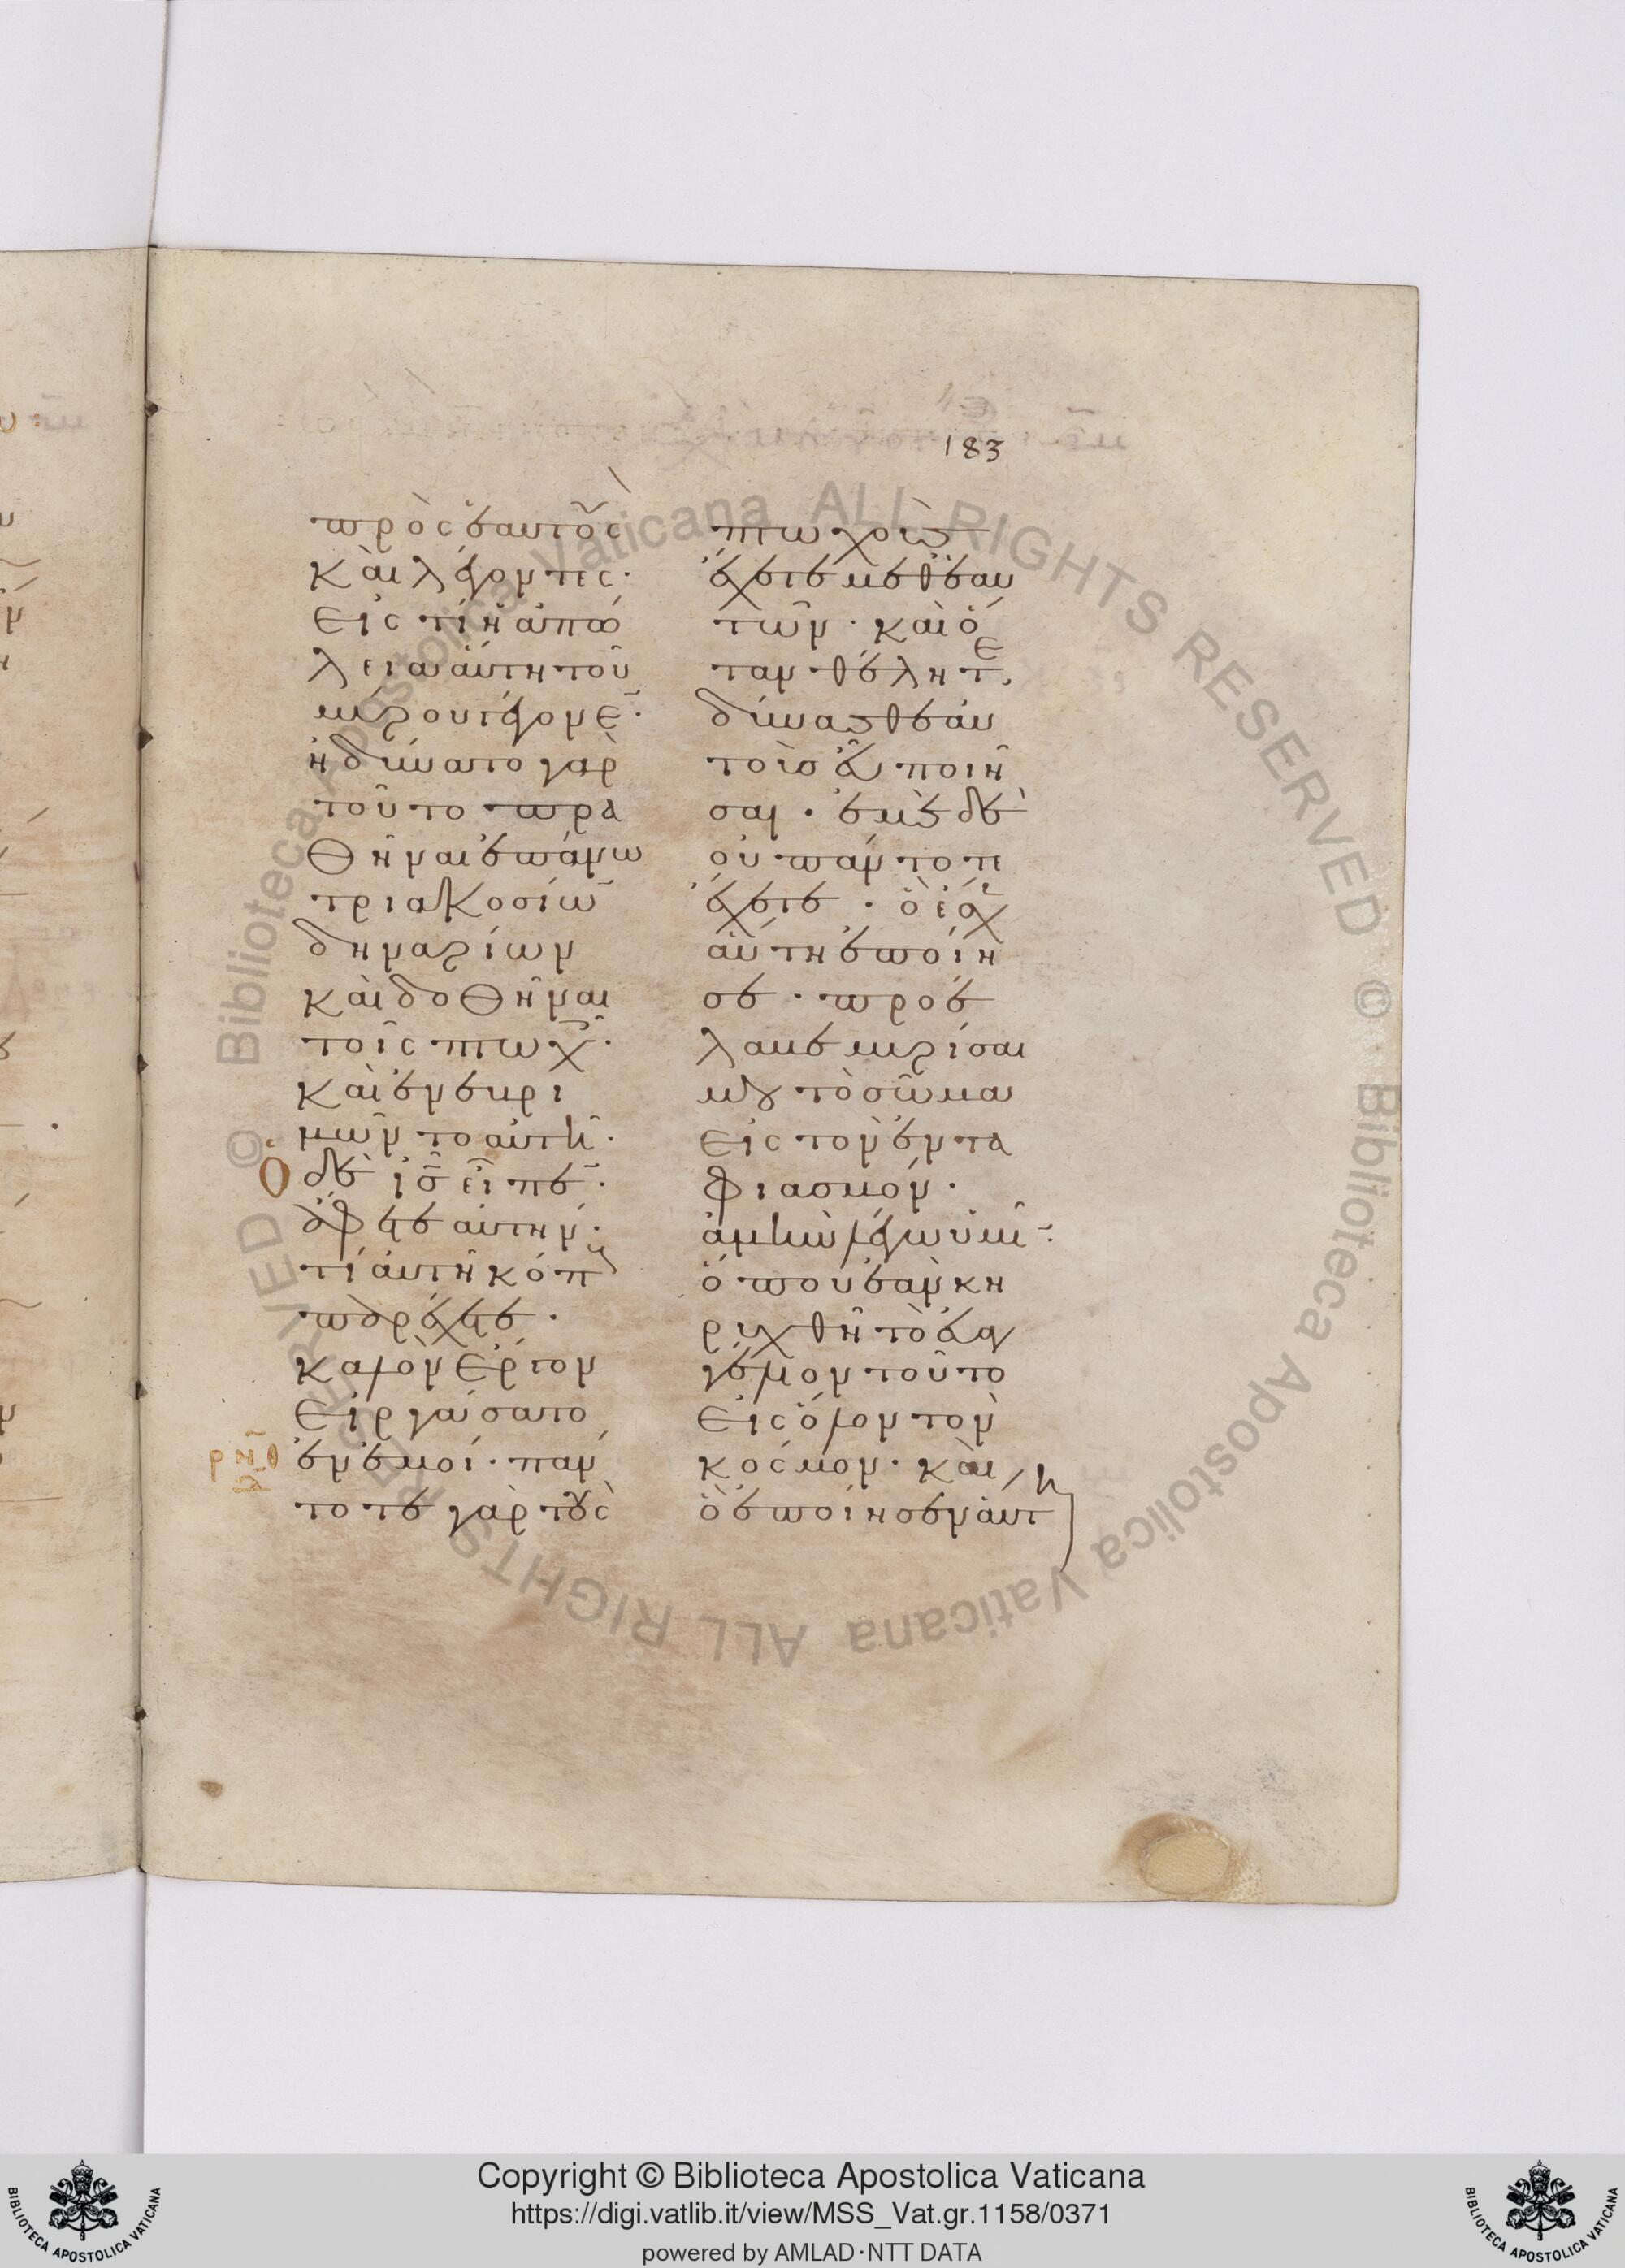 183
πρὸς ἑαυτοὺς
καὶ λέγοντες·
εἰς τί ἡ ἀπώ
λεια αὕτη τοῦ
μύρου γέγονε̅·
ἠδύνατο γὰρ
τοῦτο πρα
θῆναι ἐπάνω
τριακοσίω̅
δηναρίων
καὶ δοθῆναι
τοῖς πτωχ̅·
καὶ ἐνεβρι
μῶντο αὐτῆ·
Ὁ δὲ ι̅ς̅ εἶπε̅·
ἄφετε αὐτήν·
τί αὐτῆ κόπους
παρέχετε·
καλὸν ἔργον
εἰργάσατο
ρνθ
ἐν ἐμοί· πάν
τοτε γὰρ τοὺς
πτωχοὺς
ἔχετε μεθ ἑαυ
τῶν· καὶ ὅ
ταν θέλητε,
δύνασθε αὐ
τοῖς εὖ ποιῆ
σαι· ἐμὲ δὲ
οὐ πάντοτε
ἔχετε· ὃ ἔσχεν
αὕτη ἐποίη
σε· προέ
λαβε μυρίσαι
μου τὸ σῶμα
εἰς τὸν ἐντα
φιασμόν·
ἀμὴν λέγω ὑμῖ̅:
ὅπου ἐὰν κη
ρυχθῆ τὸ εὐαγ
γέλιον τοῦτο
εἰς ὅλον τὸν
κόσμον· καὶ
ὃ ἐποίησεν αὕτη
Copyright © Biblioteca Apostolica Vaticana
https://digi.vatlib.it/view/MSS_Vat.gr.1158/0371
powered by AMLAD·NTT DATA
BIBLIOTECA APOSTOLICA VATICANA
BIBLIOTECA APOSTOLICA VATICANA
© Biblioteca Apostolica Vaticana ALL RIGHTS RESERVED © Biblioteca Apostolica Vaticana ALL RIGHTS RESERVED